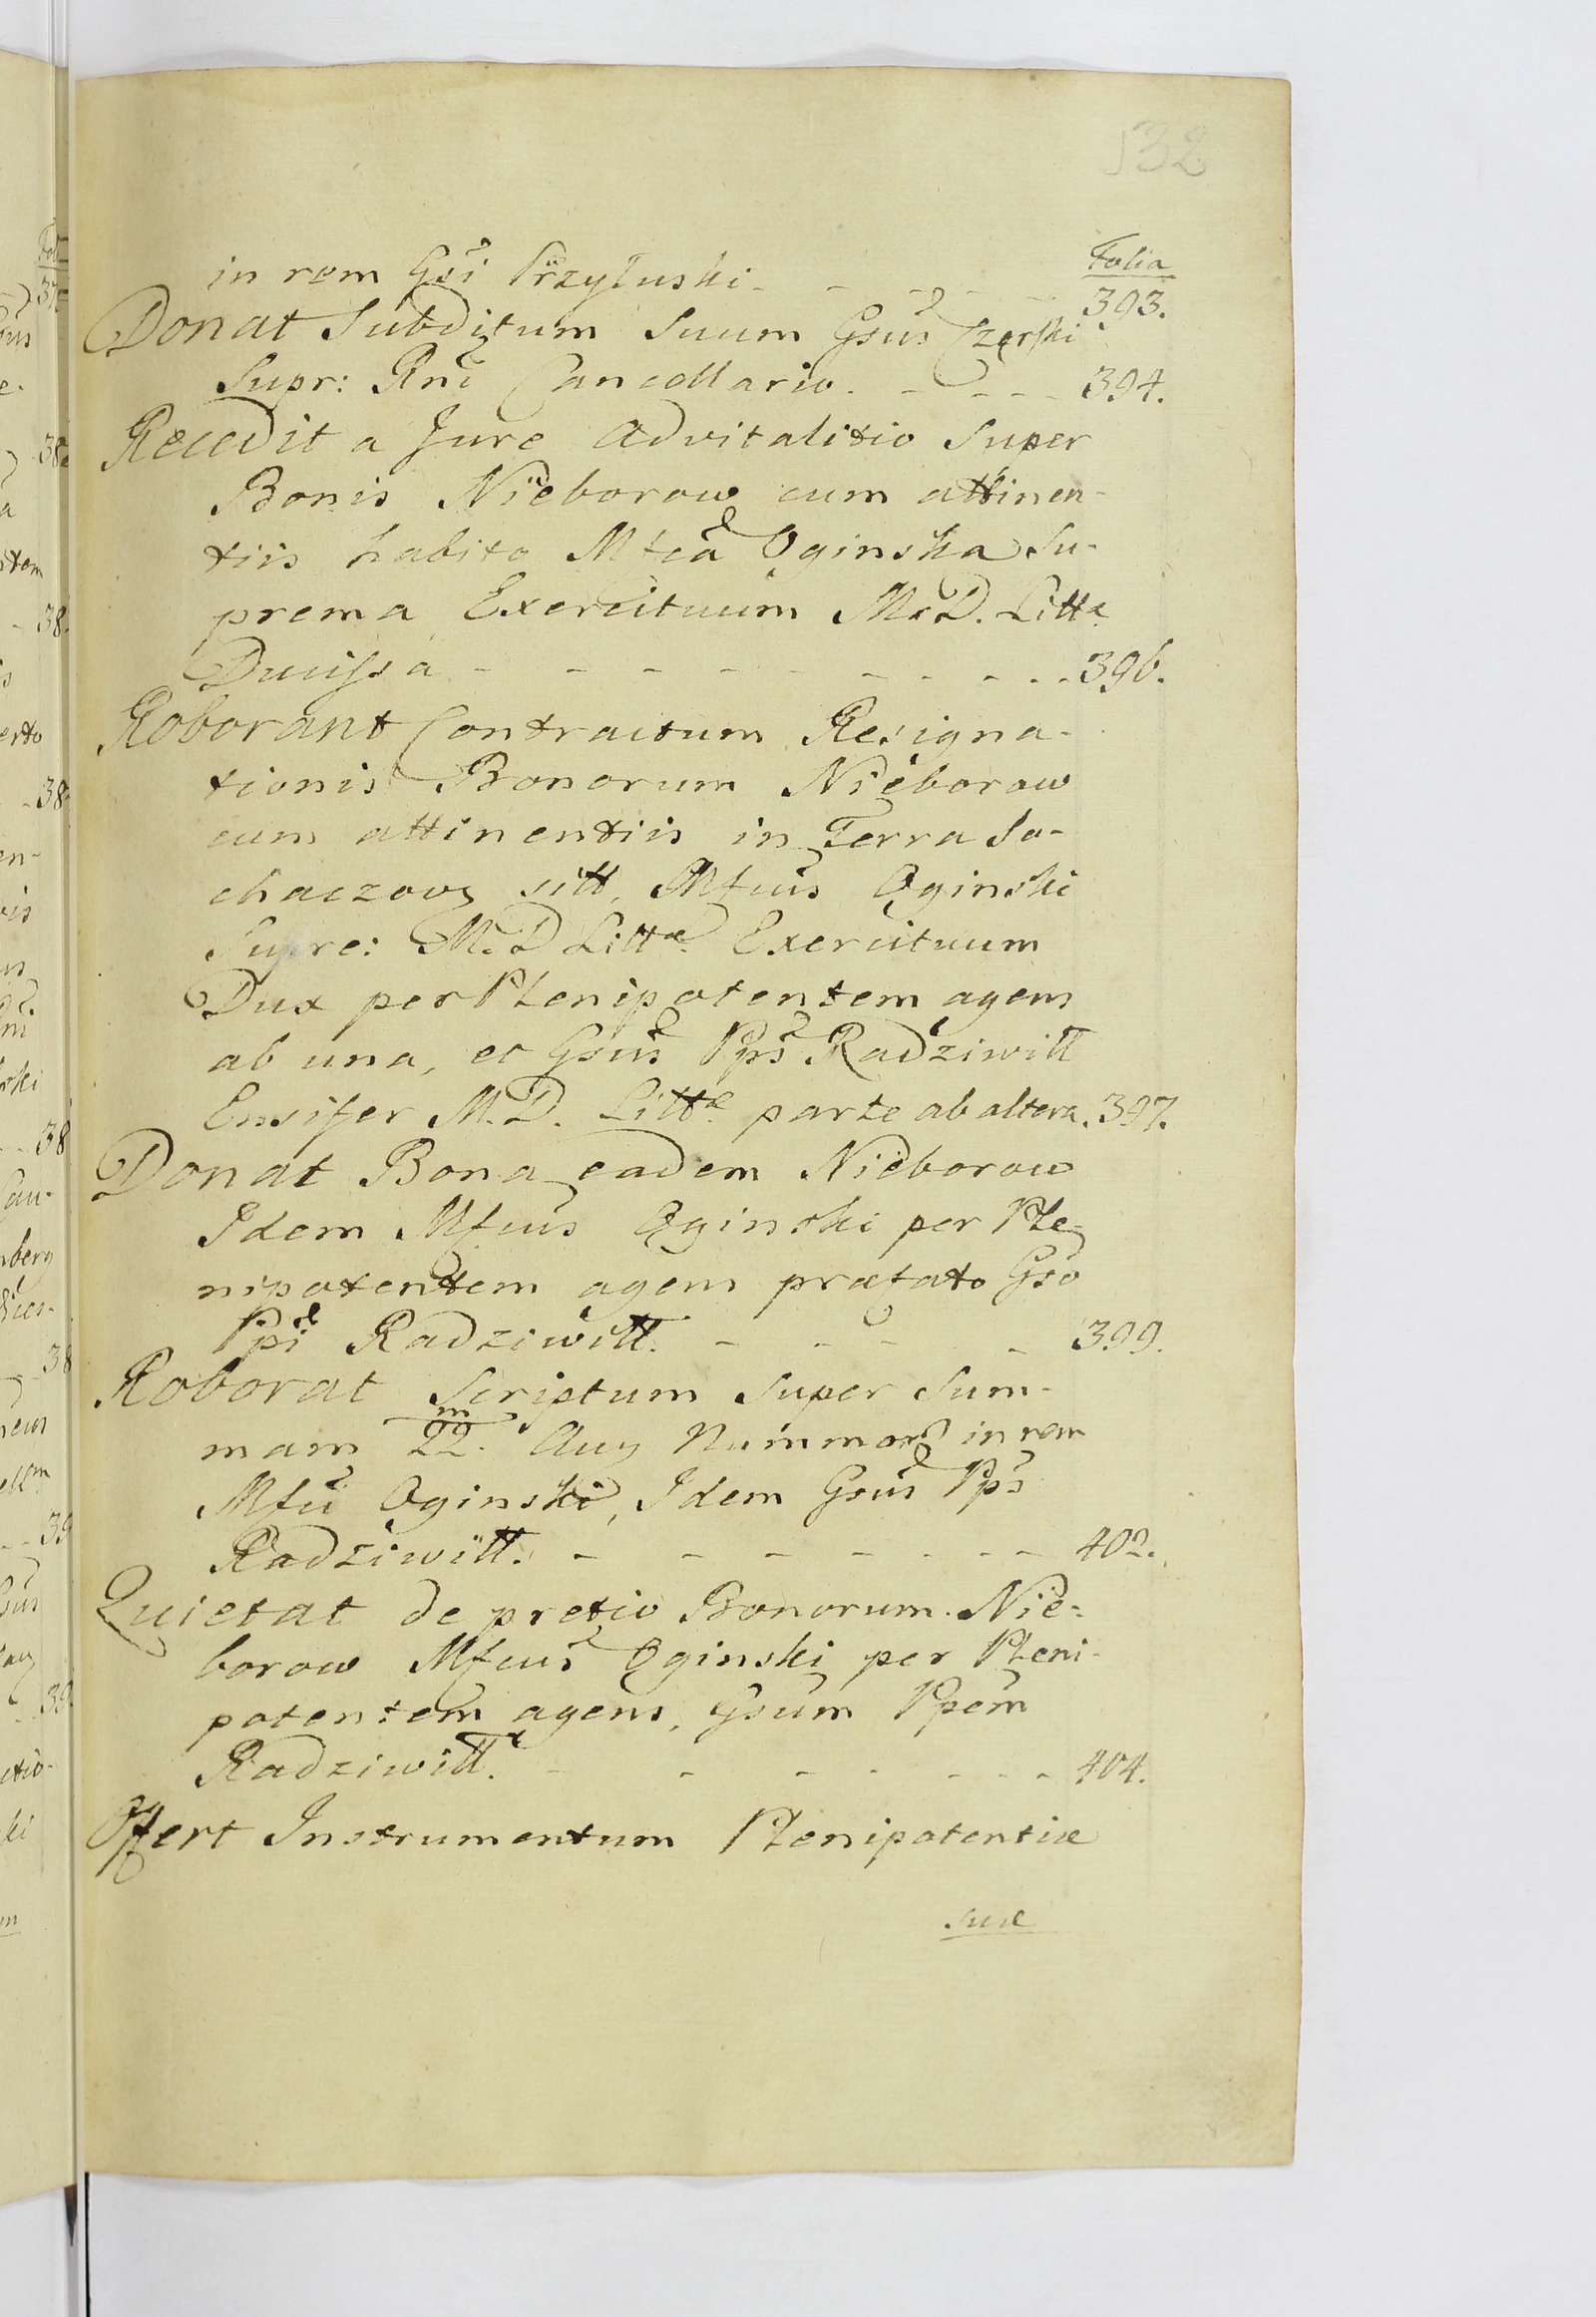 132
Folia
in rem Gsi Przyłuski - - - - - 393.
Donat Subditum Suum Gsus Czerski
Supr: Rni Cancellario. - - - - 394.
Recedit a Jure advitalitio Super
Bonis Nieborow cum attinen-
tiis habito Mtca Oginska Su-
prema Exercituum M. D. Littæ
Ducissa - - - - - - - - - 396.
Roborant Contractum Resigna-
tionis Bonorum Nieborow
cum attinentiis in Terra So-
chaczovy sitt, Mfcus Oginski
Supre: M. D Littæ Exercituum
Dux per Plenipotentem agens
ab una, et Gsus Pps Radziwiłł
Ensifer M. D. Littæ parte ab altera. 397.
Donat Bona eadem Nieborow
Idem Mfcus Oginski per Ple-
nipotentem agens præfato Gso
Ppi Radziwiłł. - - - - 399.
Roborat Scriptum Super Sum-
mam 22.m Aug Nummor in rem
Mfci Oginski, Idem Gsus Pps
Radziwiłł. - - - - - - - 402.
Quietat de pretio Bonorum Nie-
borow Mfcus Oginski per Pleni-
potentem agens, Gsum Ppem
Radziwiłł. - - - - - - - 404.
Offert Instrumentum Plenipotentiæ
suæ